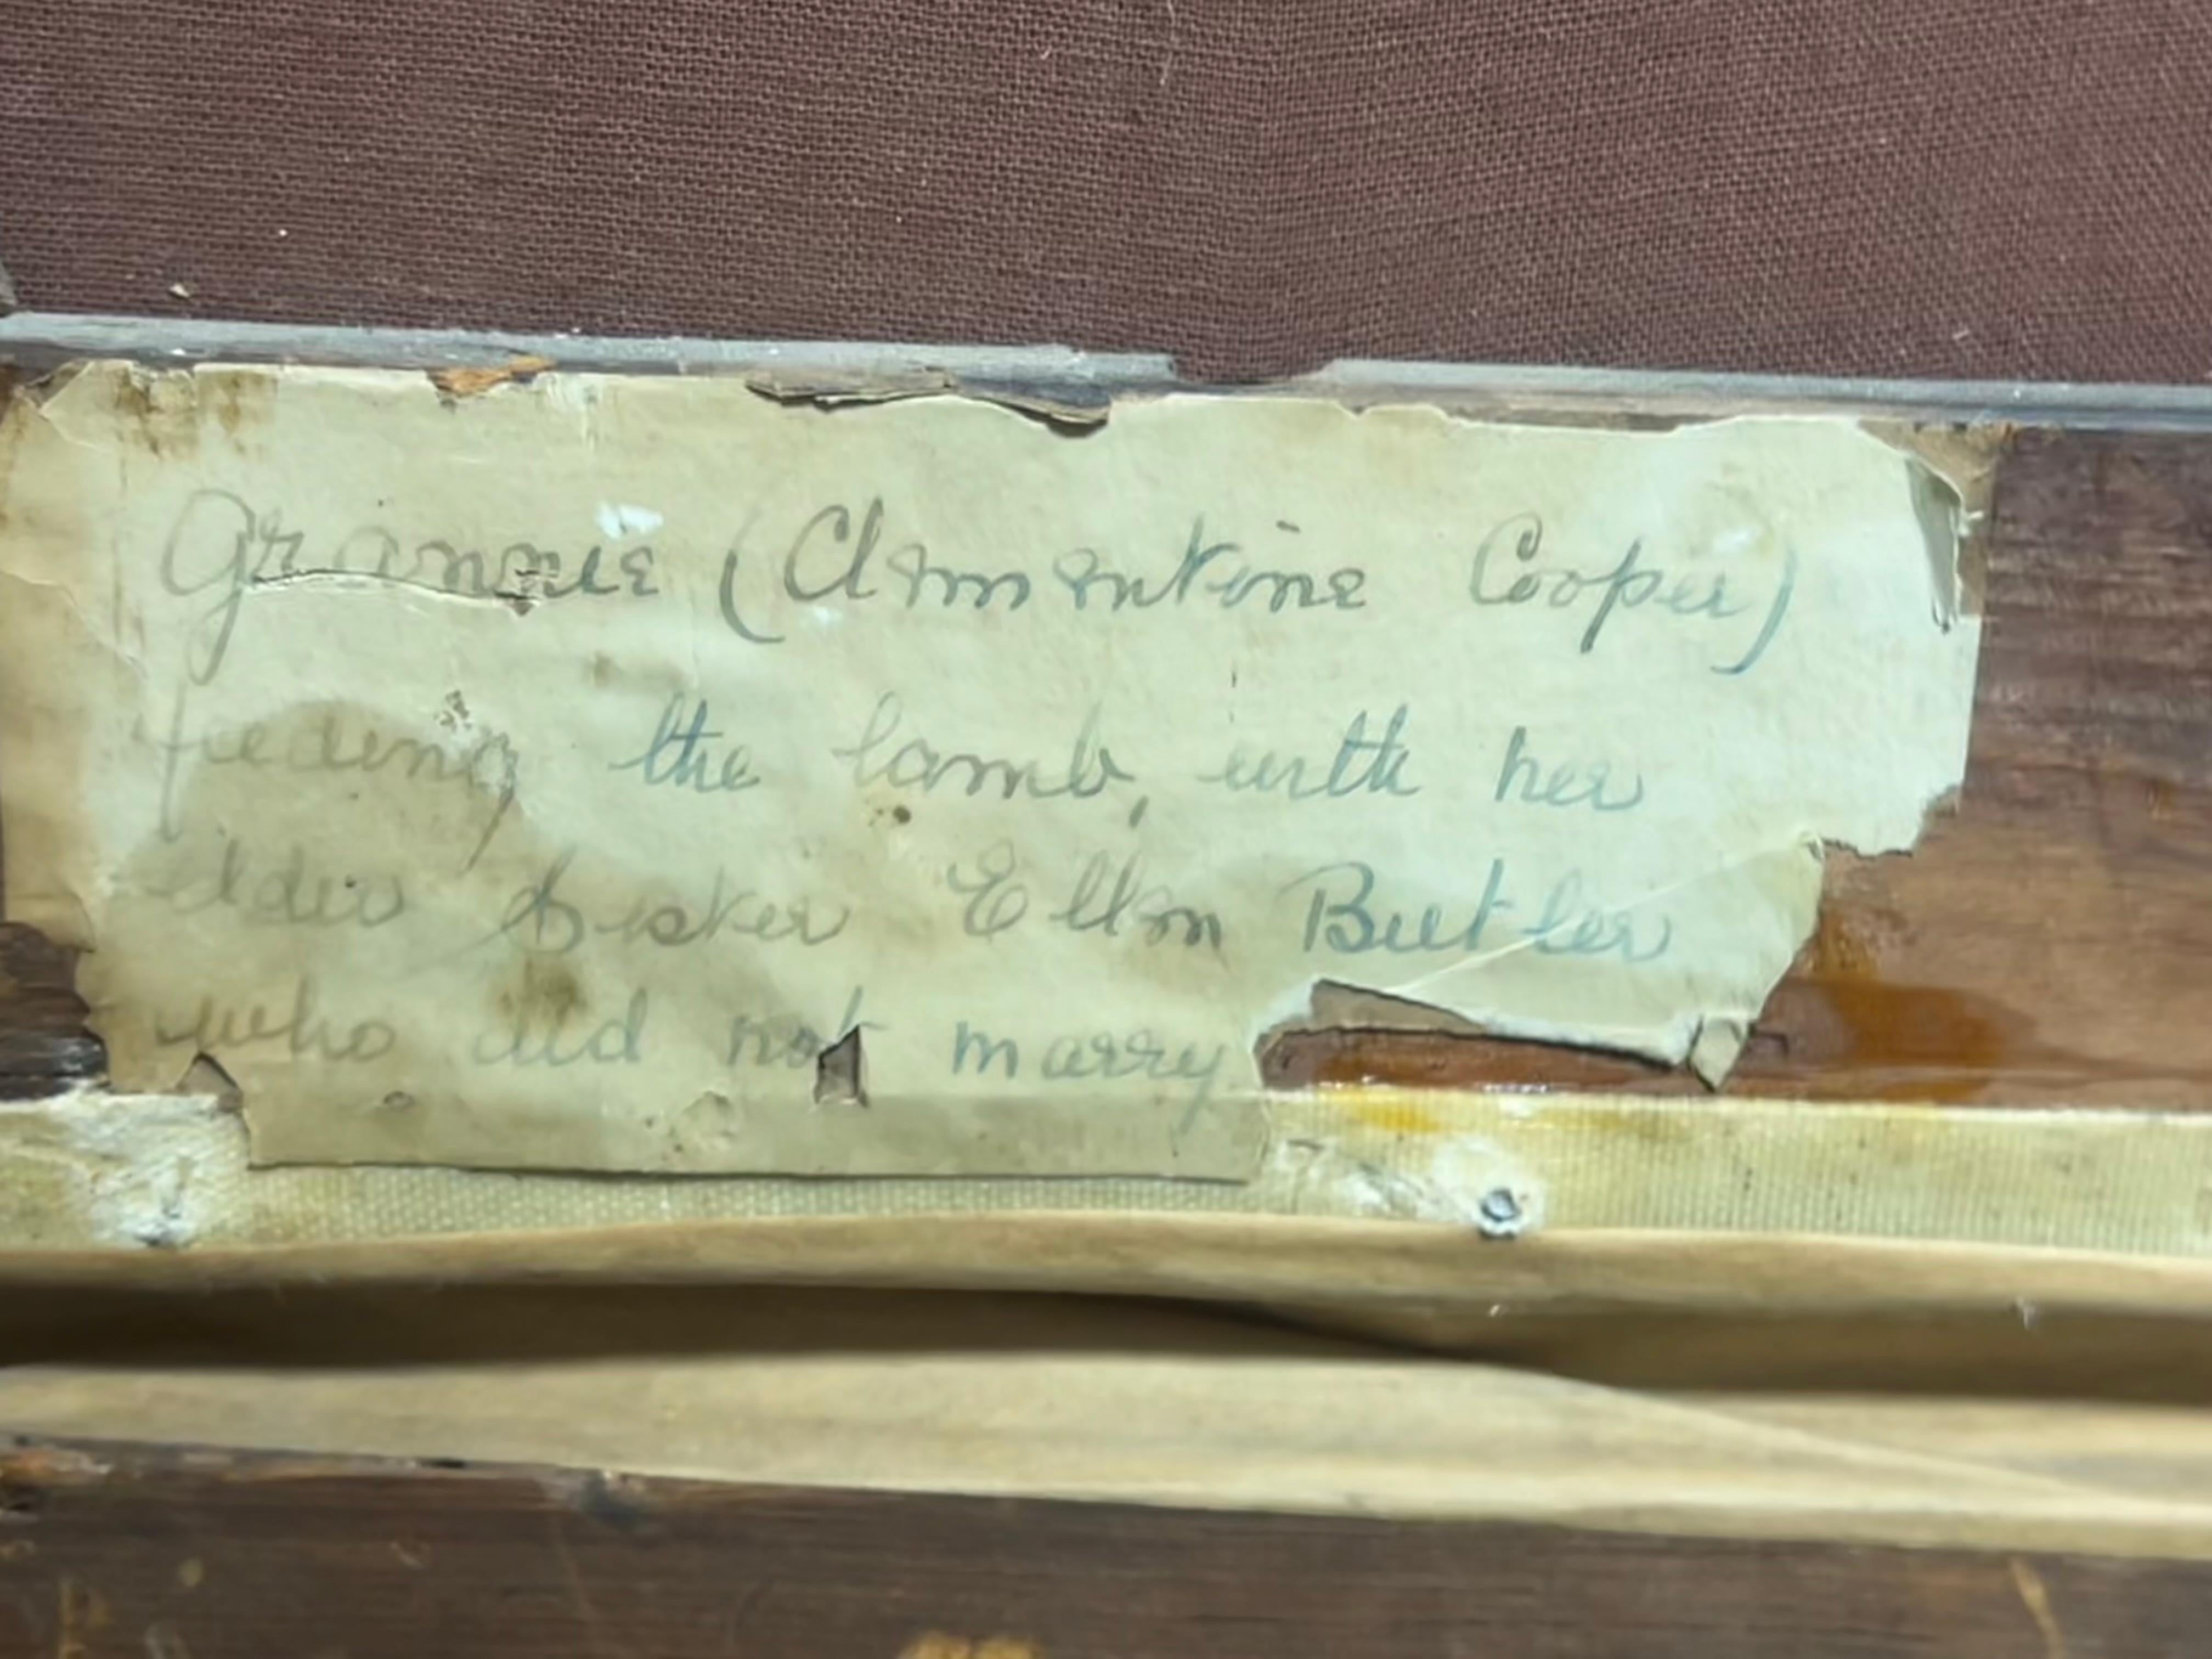 Grannie (Clementine Cooper)
feeding the lamb, with her
elder sister Ellen Butler
who did not marry